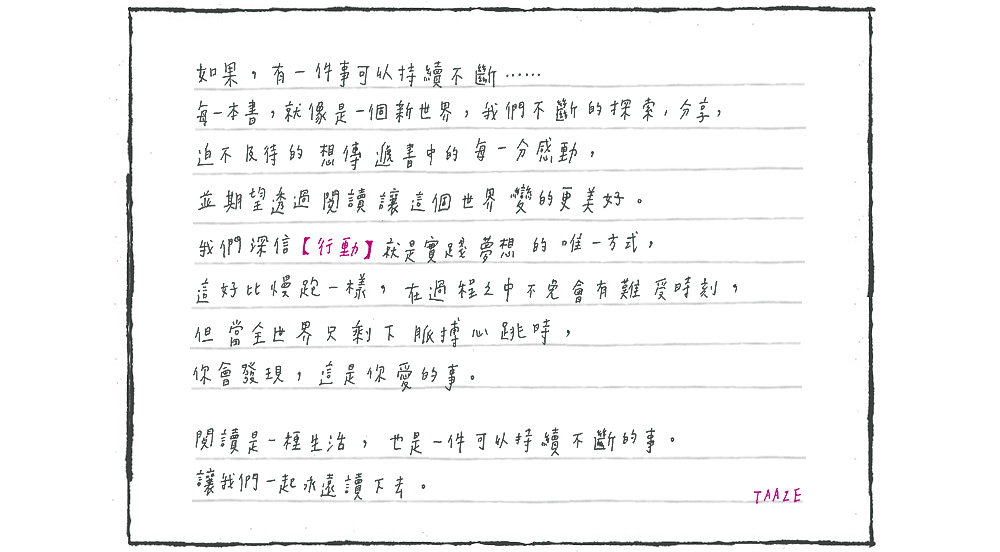 如果，有一件事可以持續不斷……
每一本書，就像是一個新世界，我們不斷的探索，分享，
迫不及待的想傳遞書中的每一分感動，
並期望透過閱讀讓這個世界變的更美好。
我們深信【行動】就是實踐夢想的唯一方式，
這好比慢跑一樣，在過程之中不免會有難受時刻，
但當全世界只剩下脈搏心跳時，
你會發現，這是你愛的事。
閱讀是一種生活，也是一件可以持續不斷的事。
讓我們一起永遠讀下去。
TAAZE